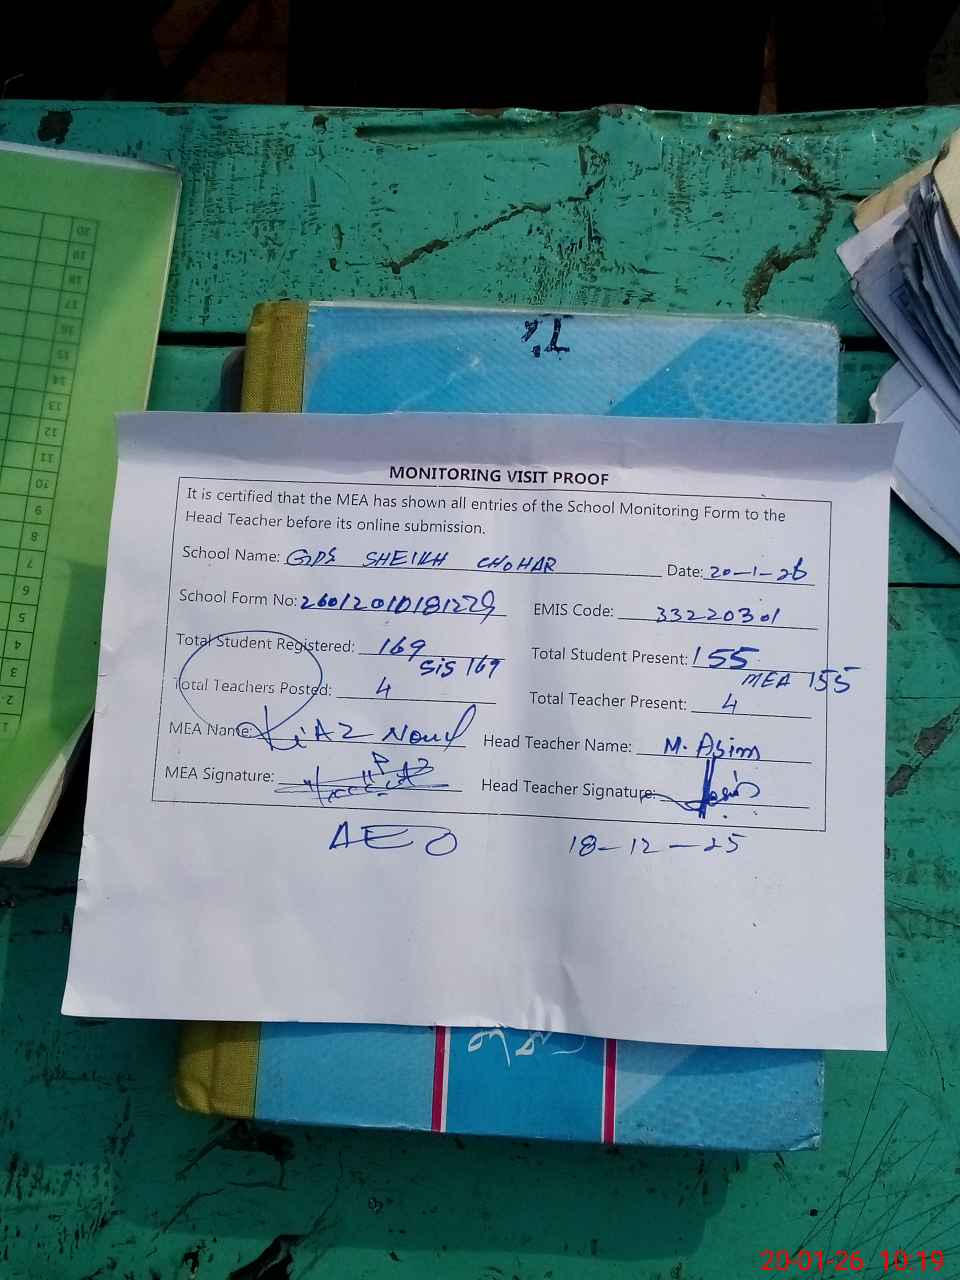 MONITORING VISIT PROOF
It is certified that the MEA has shown all entries of the School Monitoring Form to the
Head Teacher before its online submission.
School Name: GPS SHEIKH CHOHAR Date: 20-1-26
School Form No: 26012010181229 EMIS Code: 33220301
Total Student Registered: 169 Total Student Present: 155
SIS 169 MEA 155
Total Teachers Posted: 4 Total Teacher Present: 4
MEA Name: Head Teacher Name: M. Asim
MEA Signature: Head Teacher Signature:
AEO 18-12-25
20
19
18
17
16
15
14
13
12
11
10
9
8
7
6
5
4
3
2
1
20-01-26 10:19